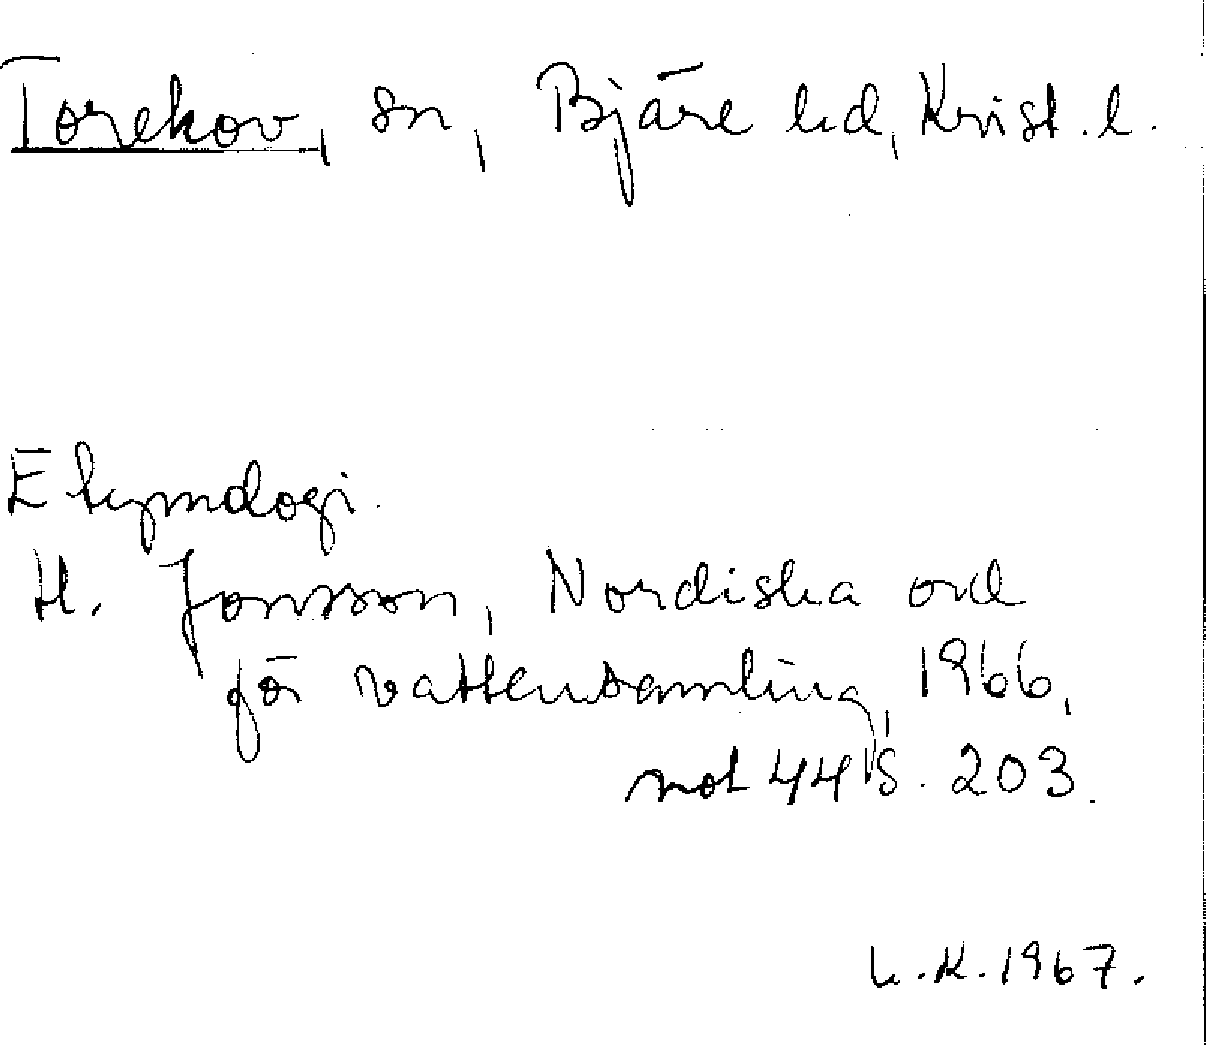 Torekov, sn, Bjäre hd, Krist. l.
Etymologi.
H. Jonsson, Nordiska ord
för vattensamling, 1966,
not 44, s. 203.
1967.